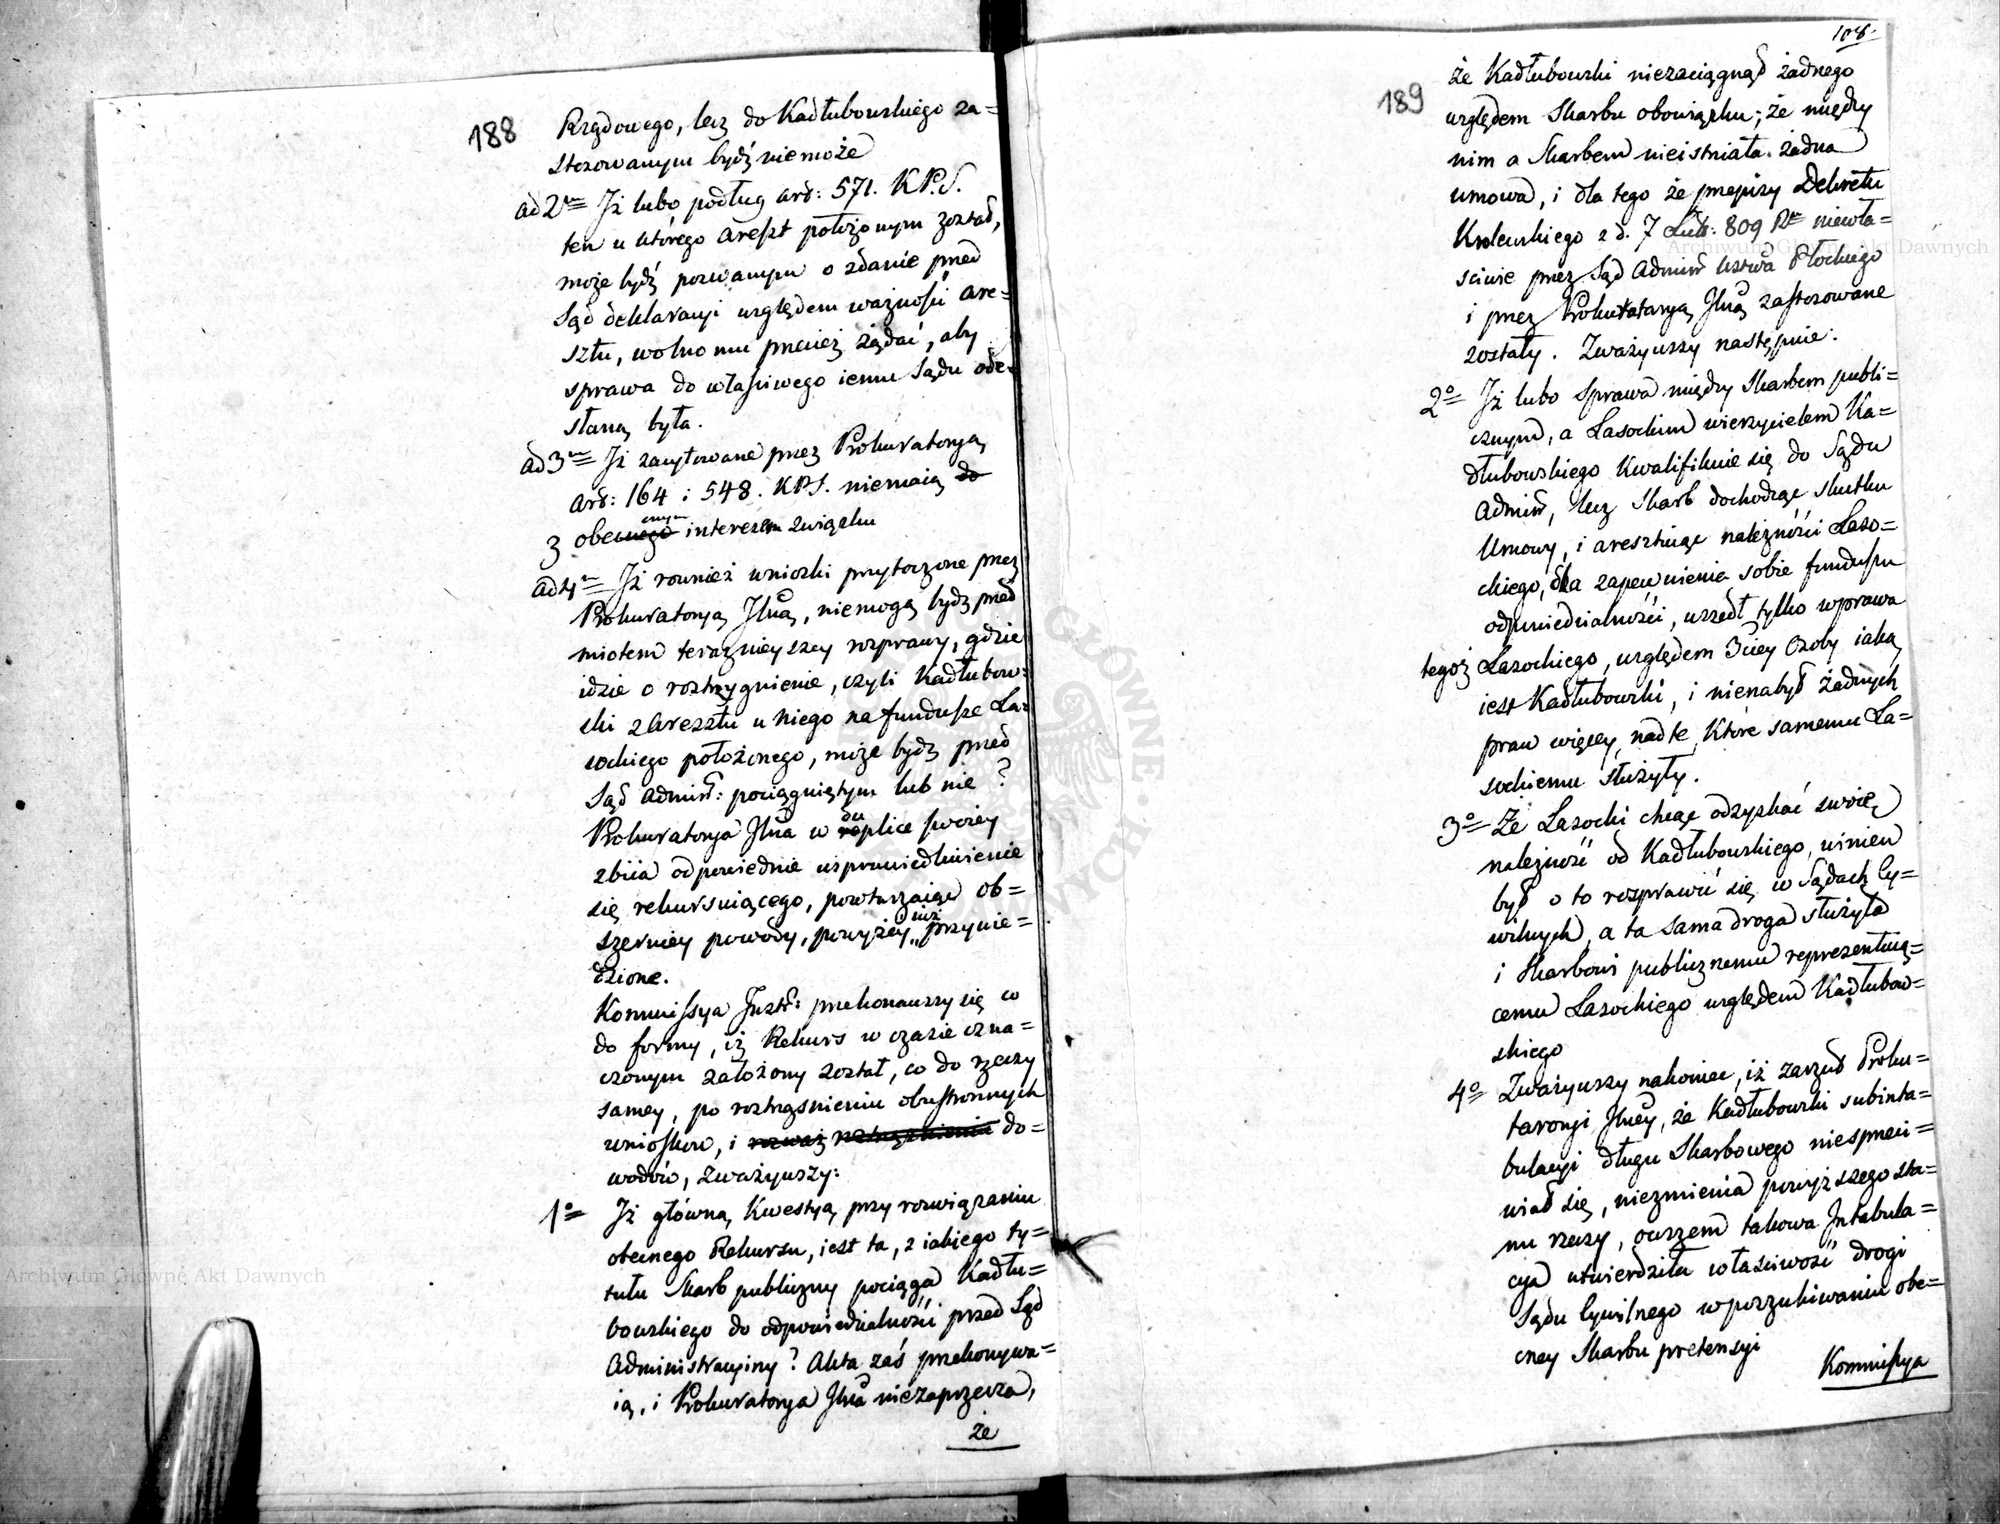 188
Rządowego, lecz do Kadłubowskiego za=
stosowanym bydź niemoże
ad 2um Jż lubo podług art: 571. K.P.S.
ten u którego areszt położonym został,
może bydź pozwanym o zdanie przed
Sąd deklaracyi względem ważności are=
sztu, wolno mu przecież żądać, aby
sprawa do właściwego iemu Sądu ode=
słaną była.
ad 3um Jż zacytowane przez Prokuratoryą
art: 164 i 548. K.P.S. niemaią do
z obecnego cnym interesem związku
ad 4m Jż rownież wnioski przytoczone przez
Prokuratoryą Jlną, niemogą bydź przed
miotem teraznieyszey rozprawy, gdzie
idzie o rostrzygnienie, czyli Kadłubow=
ski z aresztu u niego na fundusze La=
sockiego położonego, może bydź przed
Sąd Admin: pociągniętym lub nie?
Prokuratorya Jlna w duplice swoiey
zbiia odpowiednie usprawiedliwienie
się rekursuiącego, powtarzaiąc ob=
szerniey powody, powyżey już przywie=
dzione.
Kommissya Justt: przekonawszy się co
do formy, iż Rekurs w czasie ozna=
czonym założony został, co do rzeczy
samey, po roztrząsnieniu obustronnych
wniosków, i rozważ roztrząsnienia do=
wodów, zważywszy:
1o Jż główną Kwestyą przy rozwiązaniu
obecnego Rekursu, iest ta, z iakiego ty=
tułu Skarb publiczny pociąga Kadłu=
bowskiego do odpowiedzialności przed Sąd
Administracyiny? Akta zaś przekonywa=
ią, i Prokuratorya Jlna niezaprzecza,
że
108.
189
że Kadłubowski niezaciągnął żadnego
względem Skarbu obowiązku; że między
nim a Skarbem nieistniała żadna
umowa, i dla tego że przepisy Dekretu
Krolewskiego z d. 7 Lut: 809 Ru niewła=
sciwie przez Sąd Admin Wztwa Płockiego
i przez Prokuratoryą Jlną zastosowane
zostały. Zważywszy następnie:
2o Jż lubo Sprawa między Skarbem publi=
cznym, a Lasockim wierzycielem Ka=
dłubowskiego Kwalifikuie się do Sądu
Admin, lecz Skarb dochodząc skutku
Umowy, i aresztuiąc należności Laso=
ckiego, dla zapewnienia sobie funduszu
odpowiedzialności, wszedł tylko w prawa
tegoż Lasockiego, względem 3ciey Osoby iaką
iest Kadłubowski, i nienabył żadnych
praw więcey, nad te, Które samemu La=
sockiemu służyły.
3o Że Lasocki chcąc odzyskać swoię
należność od Kadłubowskiego, winien
był o to rozprawić się w Sądach Cy=
wilnych, a ta sama droga służyła
i Skarbowi publicznemu reprezentuią=
cemu Lasockiego względem Kadłubow=
skiego
4o Zważywszy nakoniec, iż zarzut Proku=
ratoryi Jlney, że Kadłubowski subinta=
bulacyi długu Skarbowego niesprzeci=
wiał się, niezmienia powyższego sta=
nu rzeczy, owszem takowa Jntabula=
cya utwierdziła właściwość drogi
Sądu Cywilnego w poszukiwaniu obe=
cney Skarbu pretensyi
Kommissya
Archiwum Główne Akt Dawnych
Archiwum Główne Akt Dawnych